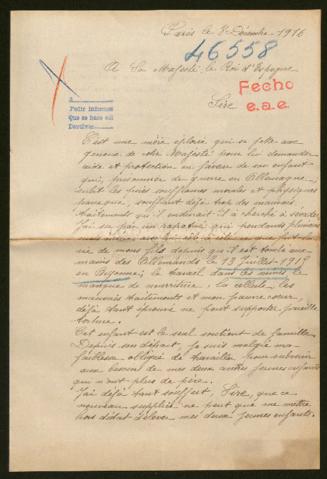 Paris le 8 Décembre 1916
46558
A Sa Majesté le Roi d'Espagne
Fecho
e.a.e.
Sire
A
Pedir informes
Que se hace así
Devolver
C'est une mère éplorée qui se jette aux
genoux de votre Majesté pour lui demander
aide et protection en faveur de son enfant
qui, prisonnier de guerre en Allemagne
subit les pires souffrances morales et physiques
parce que, souffrant déjà trop des mauvais
traitements qu'il endurait il a cherché à s'évader.
J'ai su par un rapatrié que pourtant plusieurs
vie de mon fils depuis qu'il est tombé aux
mains des Allemands le 13 Juillet 1915
en Argonne; le travail dans les mines le
manque de nourriture, la cellule, les
mauvais traitements et mon pauvre cœur,
déjà tant éprouvé ne peut supporter pareille
torture.
Cet enfant est le seul soutient de famille
Depuis son départ, je suis malgré ma
faiblesse obligée de travailler pour subvenir
aux besoins de mes deux autres jeunes enfants
qui n'ont plus de père.
J'ai déjà tant souffert, Sire, que ce
nouveau supplice ne peut que me mettre
hors d'état d'élever mes deux jeunes enfants.